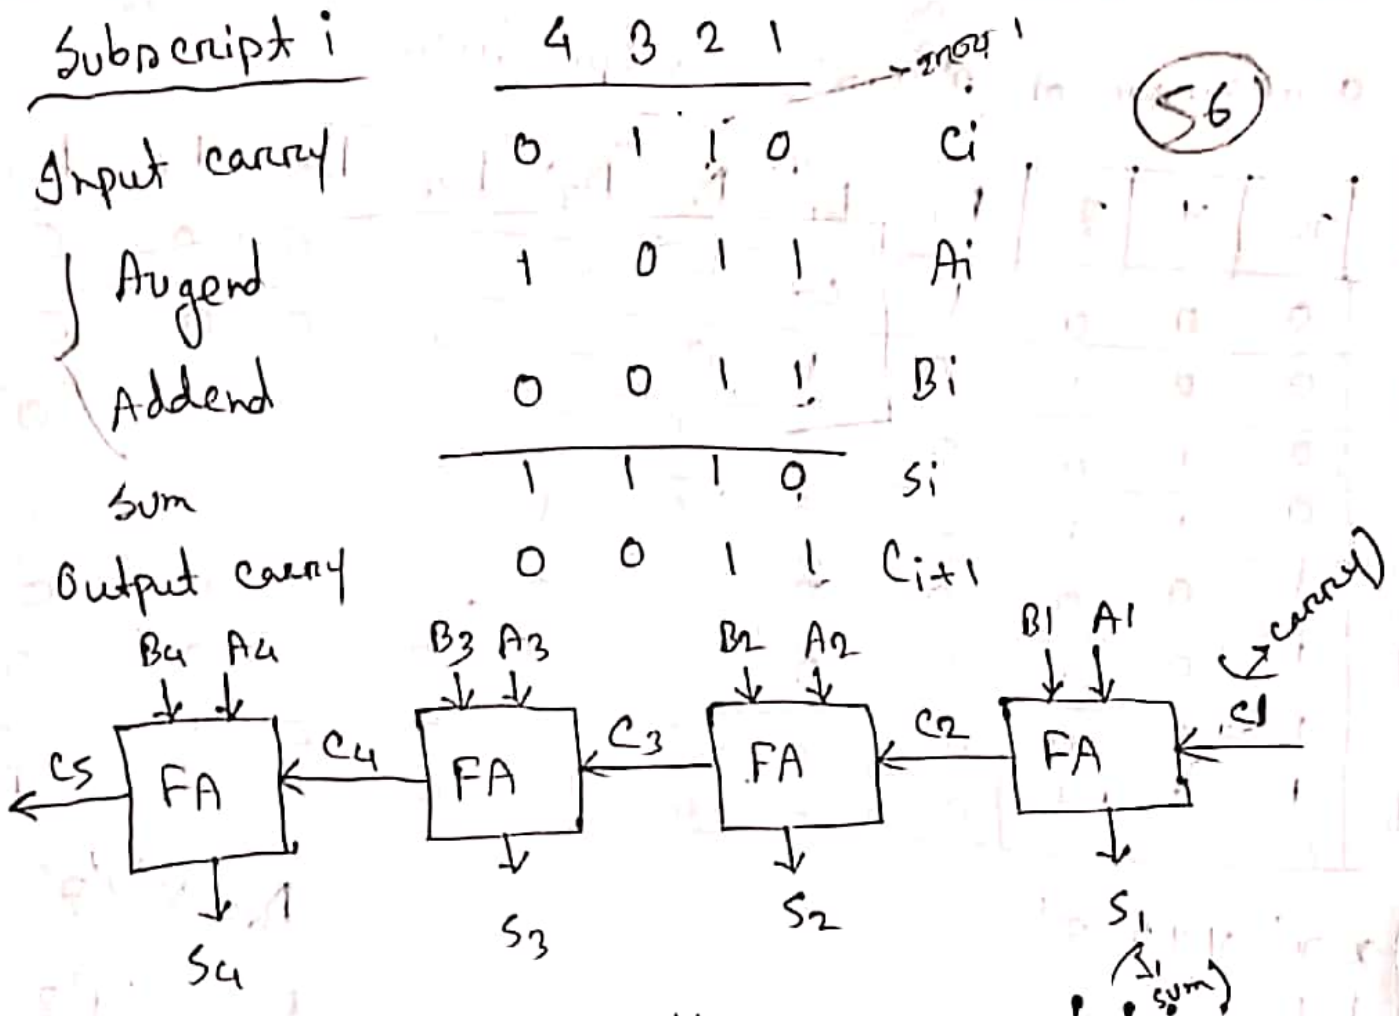 Subscript i 4 3 2 1
56
Input carry 0 1 1 0 Ci
Augend 1 0 1 1 Ai
Addend 0 0 1 1 Bi
Sum 1 1 1 0 Si
Output carry 0 0 1 1 Ci+1
carry
B4 A4 B3 A3 B2 A2 B1 A1
C5 FA C4 FA C3 FA C2 FA C1
S4 S3 S2 S1
sum